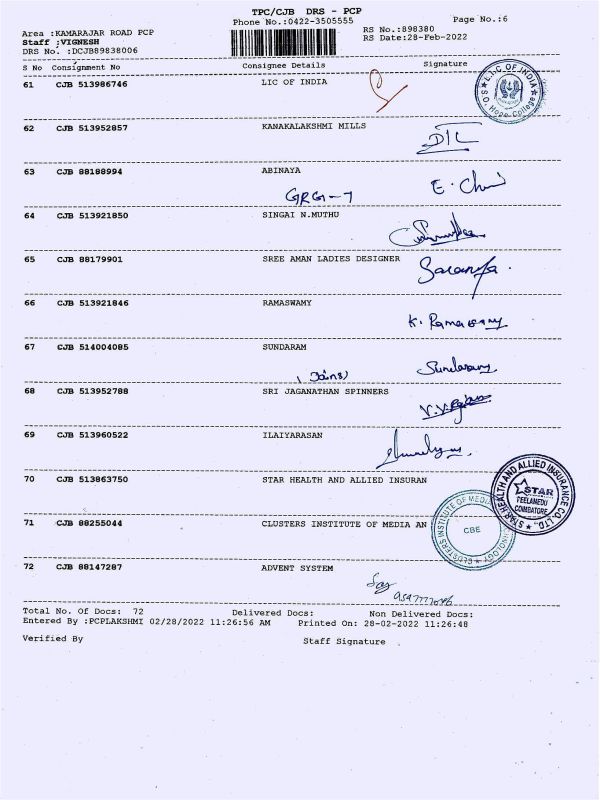 TPC/CJB DRS - PCP
Phone No.:0422-3505555
Page No.:6
Area :KAMARAJAR ROAD PCP
Staff :VIGNESH
DRS No. :DCJB89838006
RS No.:898380
RS Date:28-Feb-2022
S No Consignment No Consignee Details Signature
61 CJB 513986746 LIC OF INDIA
L.I.C. OF INDIA
Hope College
62 CJB 513952857 KANAKALAKSHMI MILLS
63 CJB 88188994 ABINAYA
GRG-7
64 CJB 513921850 SINGAI N.MUTHU
65 CJB 88179901 SREE AMAN LADIES DESIGNER
Saranya.
66 CJB 513921846 RAMASWAMY
K. Ramaswamy
67 CJB 514004085 SUNDARAM
Sundaram
68 CJB 513952788 SRI JAGANATHAN SPINNERS
69 CJB 513960522 ILAIYARASAN
70 CJB 513863750 STAR HEALTH AND ALLIED INSURAN
STAR HEALTH AND ALLIED INSURANCE CO. LTD.
STAR
PEELAMEDU
COIMBATORE
71 CJB 88255044 CLUSTERS INSTITUTE OF MEDIA AN
CLUSTERS INSTITUTE OF MEDIA
TECHNOLOGY
CBE
72 CJB 88147287 ADVENT SYSTEM
Total No. Of Docs: 72 Delivered Docs: Non Delivered Docs:
Entered By :PCPLAKSHMI 02/28/2022 11:26:56 AM Printed On: 28-02-2022 11:26:48
Verified By Staff Signature